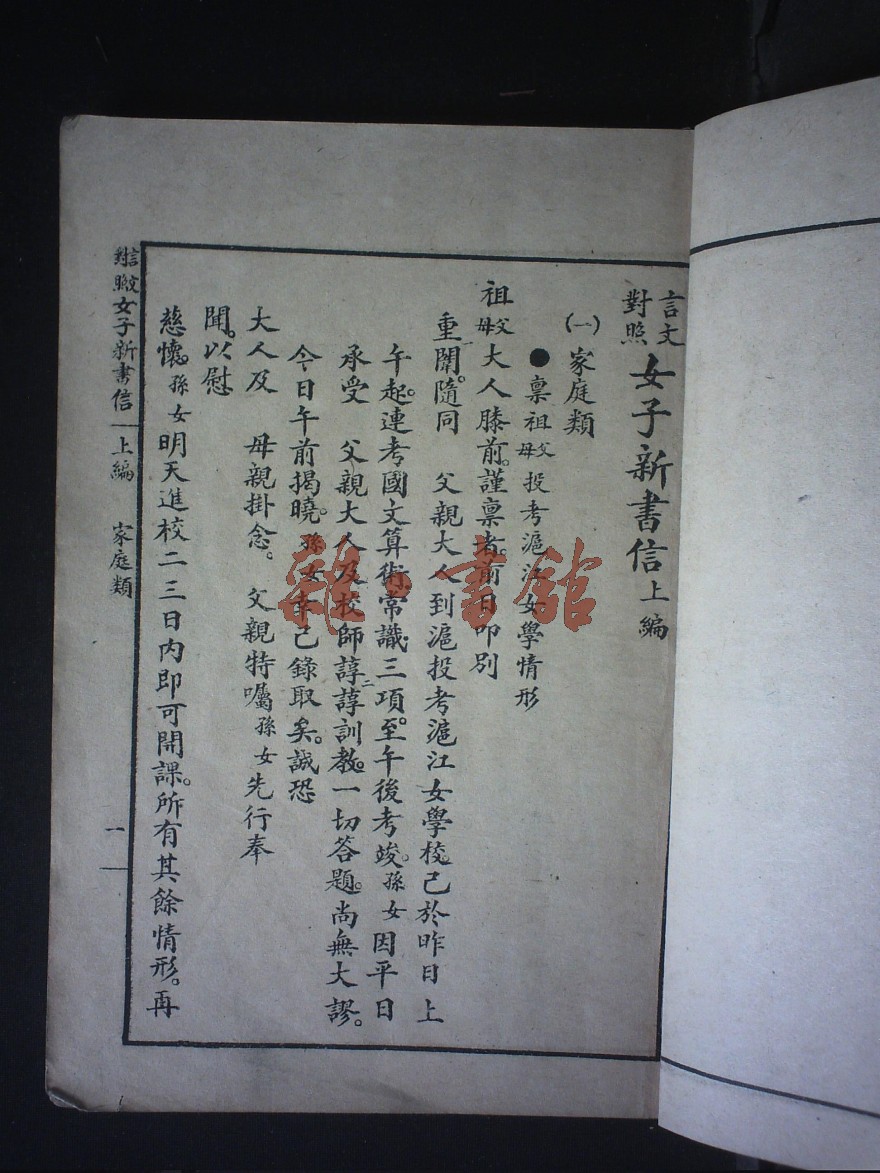 言文對照女子新書信上編
(一)家庭類
●稟祖父母投考滬江女學情形
祖父母大人膝前。謹稟者。前日叩別
重闈。隨同 父親大人到滬投考滬江女學校。己於昨日上
午起。連考國文算術常識三項。至午後考竣。孫女因平日
承受 父親大人及校師諄諄訓教。一切答題。尚無大謬。
今日午前揭曉。孫女幸己錄取矣。誠恐
大人及 母親掛念。 父親特囑孫女先行奉
聞。以慰
慈懷。孫女明天進校二三日內即可開課。所有其餘情形。再
言文對照女子新書信 上編 家庭類 一
雜·書館